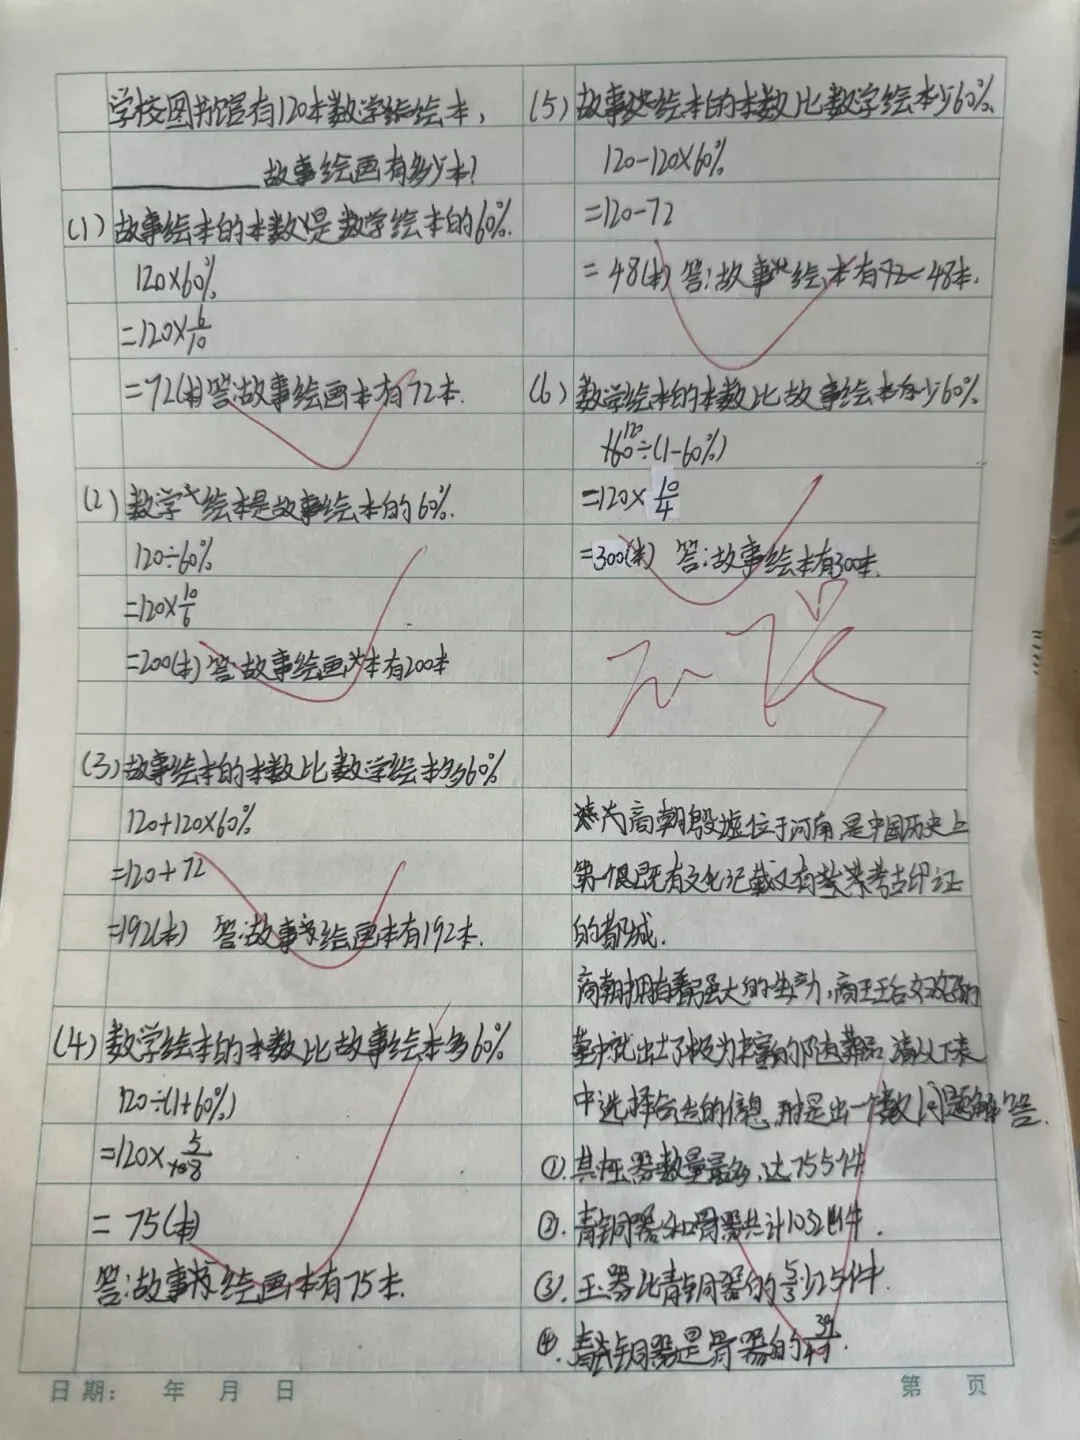 学校图书馆有120本数学绘本,
故事绘画有多少本?
(1) 故事绘本的本数是数学绘本的60%.
120×60%
=120×6/10
=72(本) 答:故事绘画本有72本.
(2) 数学绘本是故事绘本的60%.
120÷60%
=120×10/6
=200(本) 答:故事绘画本有200本
(3) 故事绘本的本数比数学绘本多60%
120+120×60%
=120+72
=192(本) 答:故事绘画本有192本.
(4) 数学绘本的本数比故事绘本多60%
120÷(1+60%)
=120×5/8
=75(本)
答:故事绘画本有75本.
日期: 年 月 日
(5) 故事绘本的本数比数学绘本少60%.
120-120×60%
=120-72
=48(本) 答:故事绘本有48本.
(6) 数学绘本的本数比故事绘本少60%.
120÷(1-60%)
=120×10/4
=300(本) 答:故事绘本有300本.
商朝殷墟位于河南,是中国历史上
第一个既有文化记载又有考古印证
的都城.
商朝拥有着强大的生产力,商王王后妇好的
墓中就出土了极为丰富的陪葬品,请从以下表
中选择合适的信息,提出一个数学问题解答.
①.其中玉器数量最多,达755件
②.青铜器和骨器共计1032件.
③.玉器比青铜器的5/3少25件.
④.青铜器是骨器的39/47.
第 页